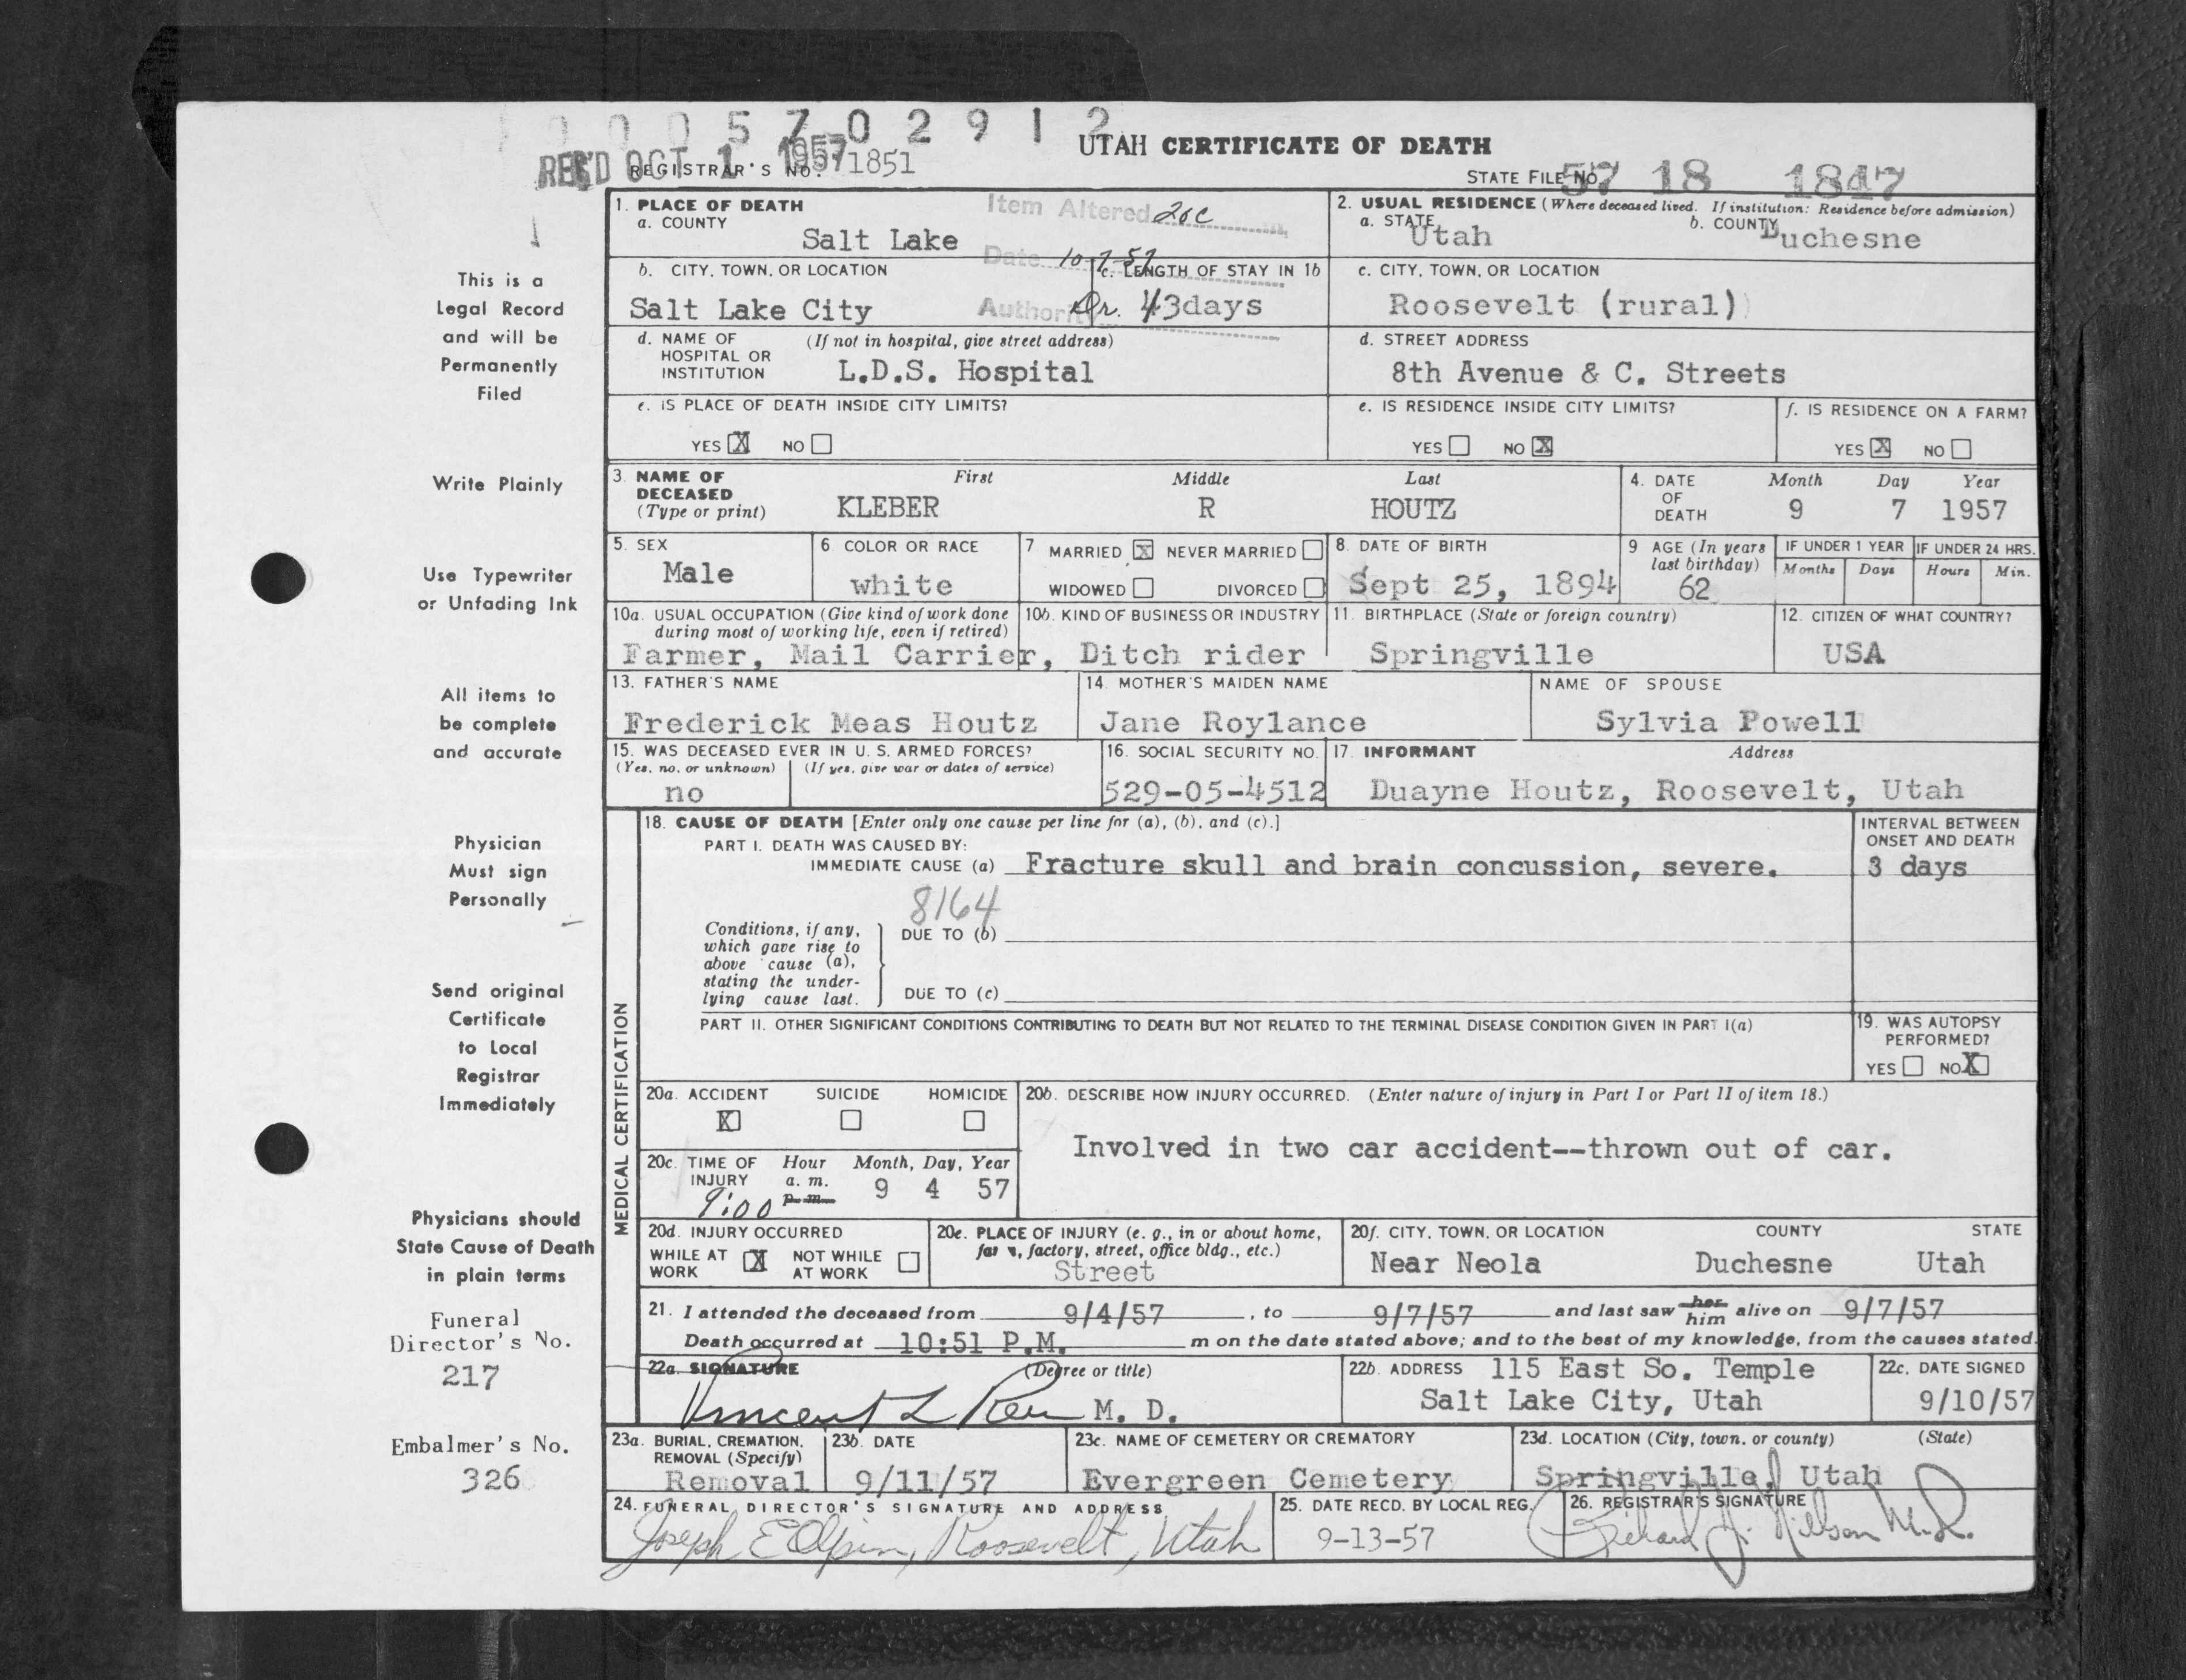 0 0 0 5 7 0 2 9 1 2
UTAH CERTIFICATE OF DEATH
REC'D OCT 1 1957
REGISTRAR'S NO. 1851
STATE FILE NO. 57 18 1847
This is a
Legal Record
and will be
Permanently
Filed
Write Plainly
Use Typewriter
or Unfading Ink
All items to
be complete
and accurate
Physician
Must sign
Personally
Send original
Certificate
to Local
Registrar
Immediately
Physicians should
State Cause of Death
in plain terms
Funeral
Director's No.
217
Embalmer's No.
326
1. PLACE OF DEATH
a. COUNTY
Salt Lake
Item Altered 20c
Date 10-7-57
Authority Dr.
b. CITY, TOWN, OR LOCATION
Salt Lake City
c. LENGTH OF STAY IN 1b
3days
d. NAME OF HOSPITAL OR INSTITUTION (If not in hospital, give street address)
L.D.S. Hospital
e. IS PLACE OF DEATH INSIDE CITY LIMITS?
YES X NO
2. USUAL RESIDENCE (Where deceased lived. If institution: Residence before admission)
a. STATE Utah b. COUNTY Duchesne
c. CITY, TOWN, OR LOCATION
Roosevelt (rural)
d. STREET ADDRESS
8th Avenue & C. Streets
e. IS RESIDENCE INSIDE CITY LIMITS?
YES NO X
f. IS RESIDENCE ON A FARM?
YES X NO
3. NAME OF DECEASED (Type or print)
First Middle Last
KLEBER R HOUTZ
4. DATE OF DEATH
Month Day Year
9 7 1957
5. SEX
Male
6 COLOR OR RACE
white
7 MARRIED X NEVER MARRIED
WIDOWED DIVORCED
8. DATE OF BIRTH
Sept 25, 1894
9 AGE (In years last birthday)
62
IF UNDER 1 YEAR
Months Days
IF UNDER 24 HRS.
Hours Min.
10a. USUAL OCCUPATION (Give kind of work done during most of working life, even if retired)
10b. KIND OF BUSINESS OR INDUSTRY
Farmer, Mail Carrier, Ditch rider
11. BIRTHPLACE (State or foreign country)
Springville
12. CITIZEN OF WHAT COUNTRY?
USA
13. FATHER'S NAME
Frederick Meas Houtz
14. MOTHER'S MAIDEN NAME
Jane Roylance
NAME OF SPOUSE
Sylvia Powell
15. WAS DECEASED EVER IN U. S. ARMED FORCES?
(Yes, no, or unknown) (If yes, give war or dates of service)
no
16. SOCIAL SECURITY NO.
529-05-4512
17. INFORMANT Address
Duayne Houtz, Roosevelt, Utah
MEDICAL CERTIFICATION
18. CAUSE OF DEATH [Enter only one cause per line for (a), (b), and (c).]
PART I. DEATH WAS CAUSED BY:
IMMEDIATE CAUSE (a) Fracture skull and brain concussion, severe.
INTERVAL BETWEEN ONSET AND DEATH
3 days
8164
Conditions, if any, which gave rise to above cause (a), stating the underlying cause last.
DUE TO (b)
DUE TO (c)
PART II. OTHER SIGNIFICANT CONDITIONS CONTRIBUTING TO DEATH BUT NOT RELATED TO THE TERMINAL DISEASE CONDITION GIVEN IN PART I(a)
19. WAS AUTOPSY PERFORMED?
YES NO X
20a. ACCIDENT SUICIDE HOMICIDE
X
20b. DESCRIBE HOW INJURY OCCURRED. (Enter nature of injury in Part I or Part II of item 18.)
Involved in two car accident--thrown out of car.
20c. TIME OF INJURY Hour Month, Day, Year
9:00 a. m. p. m. 9 4 57
20d. INJURY OCCURRED
WHILE AT WORK X NOT WHILE AT WORK
20e. PLACE OF INJURY (e. g., in or about home, farm, factory, street, office bldg., etc.)
Street
20f. CITY, TOWN, OR LOCATION COUNTY STATE
Near Neola Duchesne Utah
21. I attended the deceased from 9/4/57, to 9/7/57 and last saw her him alive on 9/7/57
Death occurred at 10:51 P.M. m on the date stated above; and to the best of my knowledge, from the causes stated.
22a. SIGNATURE (Degree or title)
Vincent L Rees M. D.
22b. ADDRESS 115 East So. Temple
Salt Lake City, Utah
22c. DATE SIGNED
9/10/57
23a. BURIAL, CREMATION, REMOVAL (Specify)
Removal
23b. DATE
9/11/57
23c. NAME OF CEMETERY OR CREMATORY
Evergreen Cemetery
23d. LOCATION (City, town, or county) (State)
Springville, Utah
24. FUNERAL DIRECTOR'S SIGNATURE AND ADDRESS
Joseph E Olpin, Roosevelt, Utah
25. DATE RECD. BY LOCAL REG.
9-13-57
26. REGISTRAR'S SIGNATURE
Richard J. Nilson M.D.